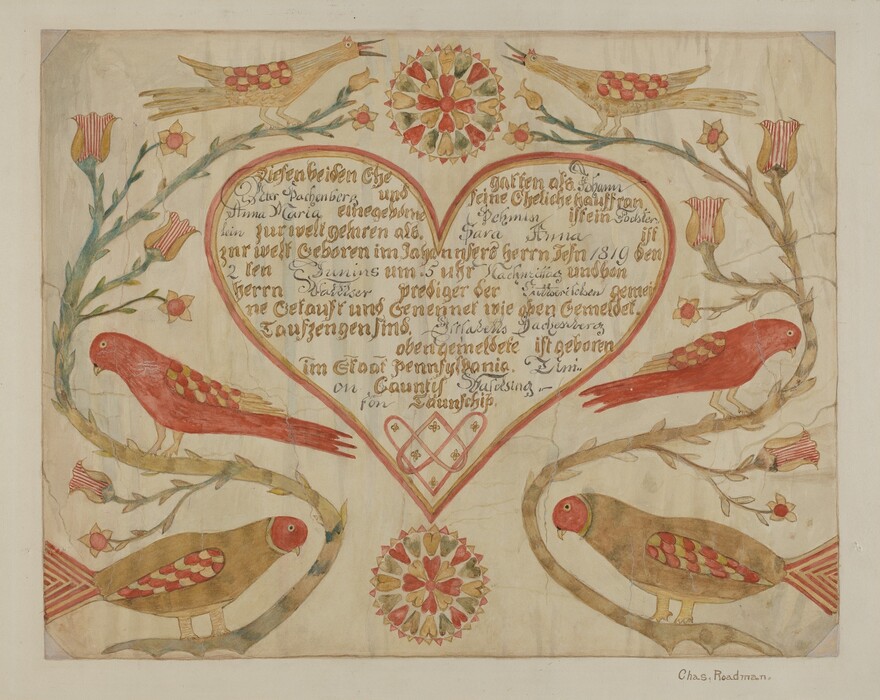 Diesen beiden Ehe gatten als Johann
Peter Dachenberg und seine Eheliche hauffrau
Anna Maria eine geborne ist ein Tochter
lein zur welt geboren als Sara Anna ist
zur welt Geboren im Jahr unsers herrn Jesu 1819 den
2 ten Junius um 5 uhr Nachmittag und von
herrn prediger der gemei
ne Getauft und Genennet wie oben Gemeldet.
Taufzeugen sind. Dachenberg
oben gemeldete ist geboren
im Staat Pennsylvania.
on Cauntis
ton Taunschip.
Chas. Roadman.